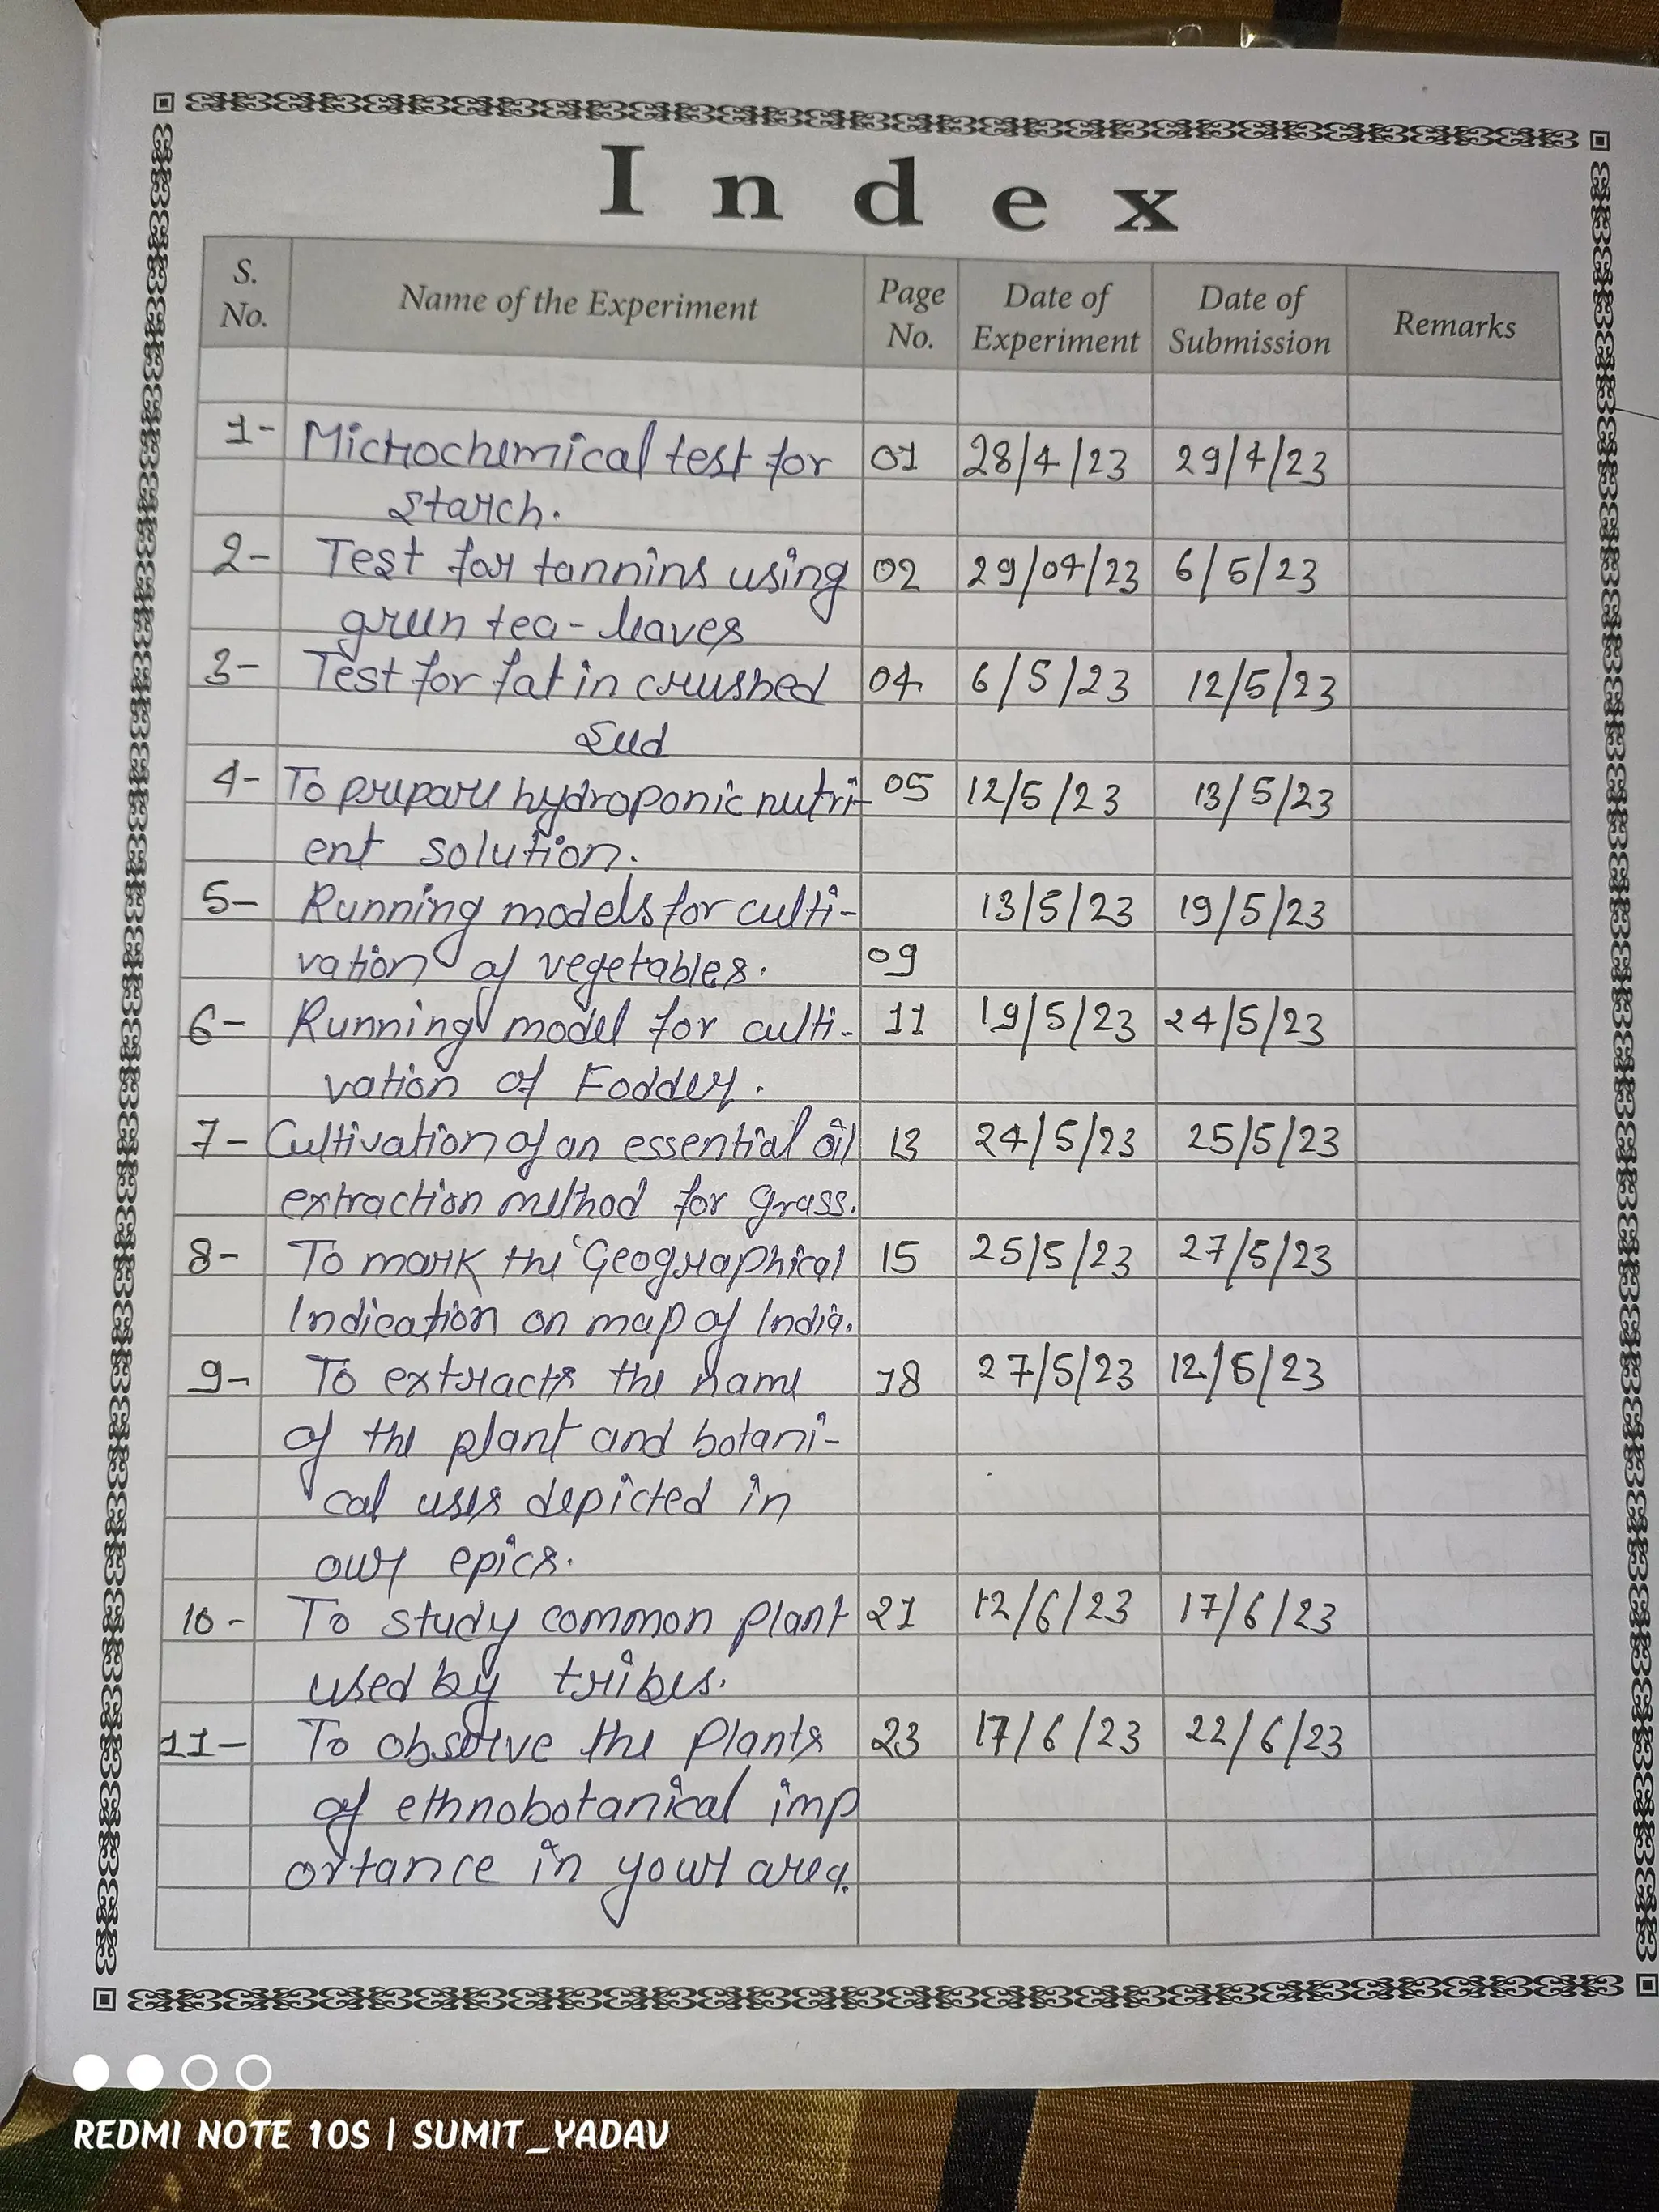 Index
S. No. Name of the Experiment Page No. Date of Experiment Date of Submission Remarks
1- Microchemical test for 01 28/4/23 29/4/23
starch.
2- Test for tannins using 02 29/04/23 6/5/23
green tea-leaves
3- Test for fat in crushed 04 6/5/23 12/5/23
seed
4- To prepare hydroponic nutri- 05 12/5/23 13/5/23
ent solution.
5- Running models for culti- 13/5/23 19/5/23
vation of vegetables. 09
6- Running model for culti- 11 19/5/23 24/5/23
vation of Fodder.
7- Cultivation of an essential oil 13 24/5/23 25/5/23
extraction method for grass.
8- To mark the Geographical 15 25/5/23 27/5/23
Indication on map of India.
9- To extracts the name 18 27/5/23 12/6/23
of the plant and botani-
cal uses depicted in
our epics.
10- To study common plant 21 12/6/23 17/6/23
used by tribes.
11- To observe the Plants 23 17/6/23 22/6/23
of ethnobotanical imp
ortance in your area.
REDMI NOTE 10S | SUMIT_YADAV